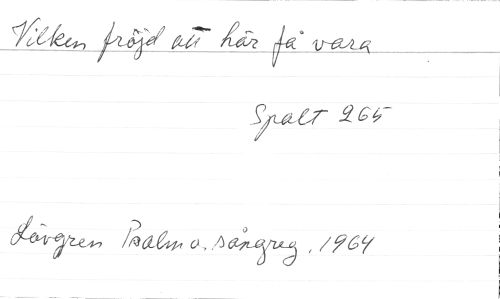 Vilken fröjd att här få vara
Spalt 265
Lövgren Psalm o. sångreg. 1964